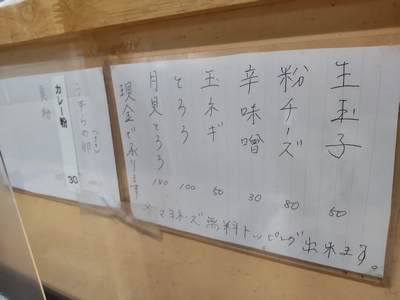 生玉子 50
粉チーズ 80
辛味噌 30
玉ネギ 50
とろろ 100
月見とろろ 140
現金で承ります
※マヨネーズ無料トッピング出来ます。
うずらの卵
カレー粉 30